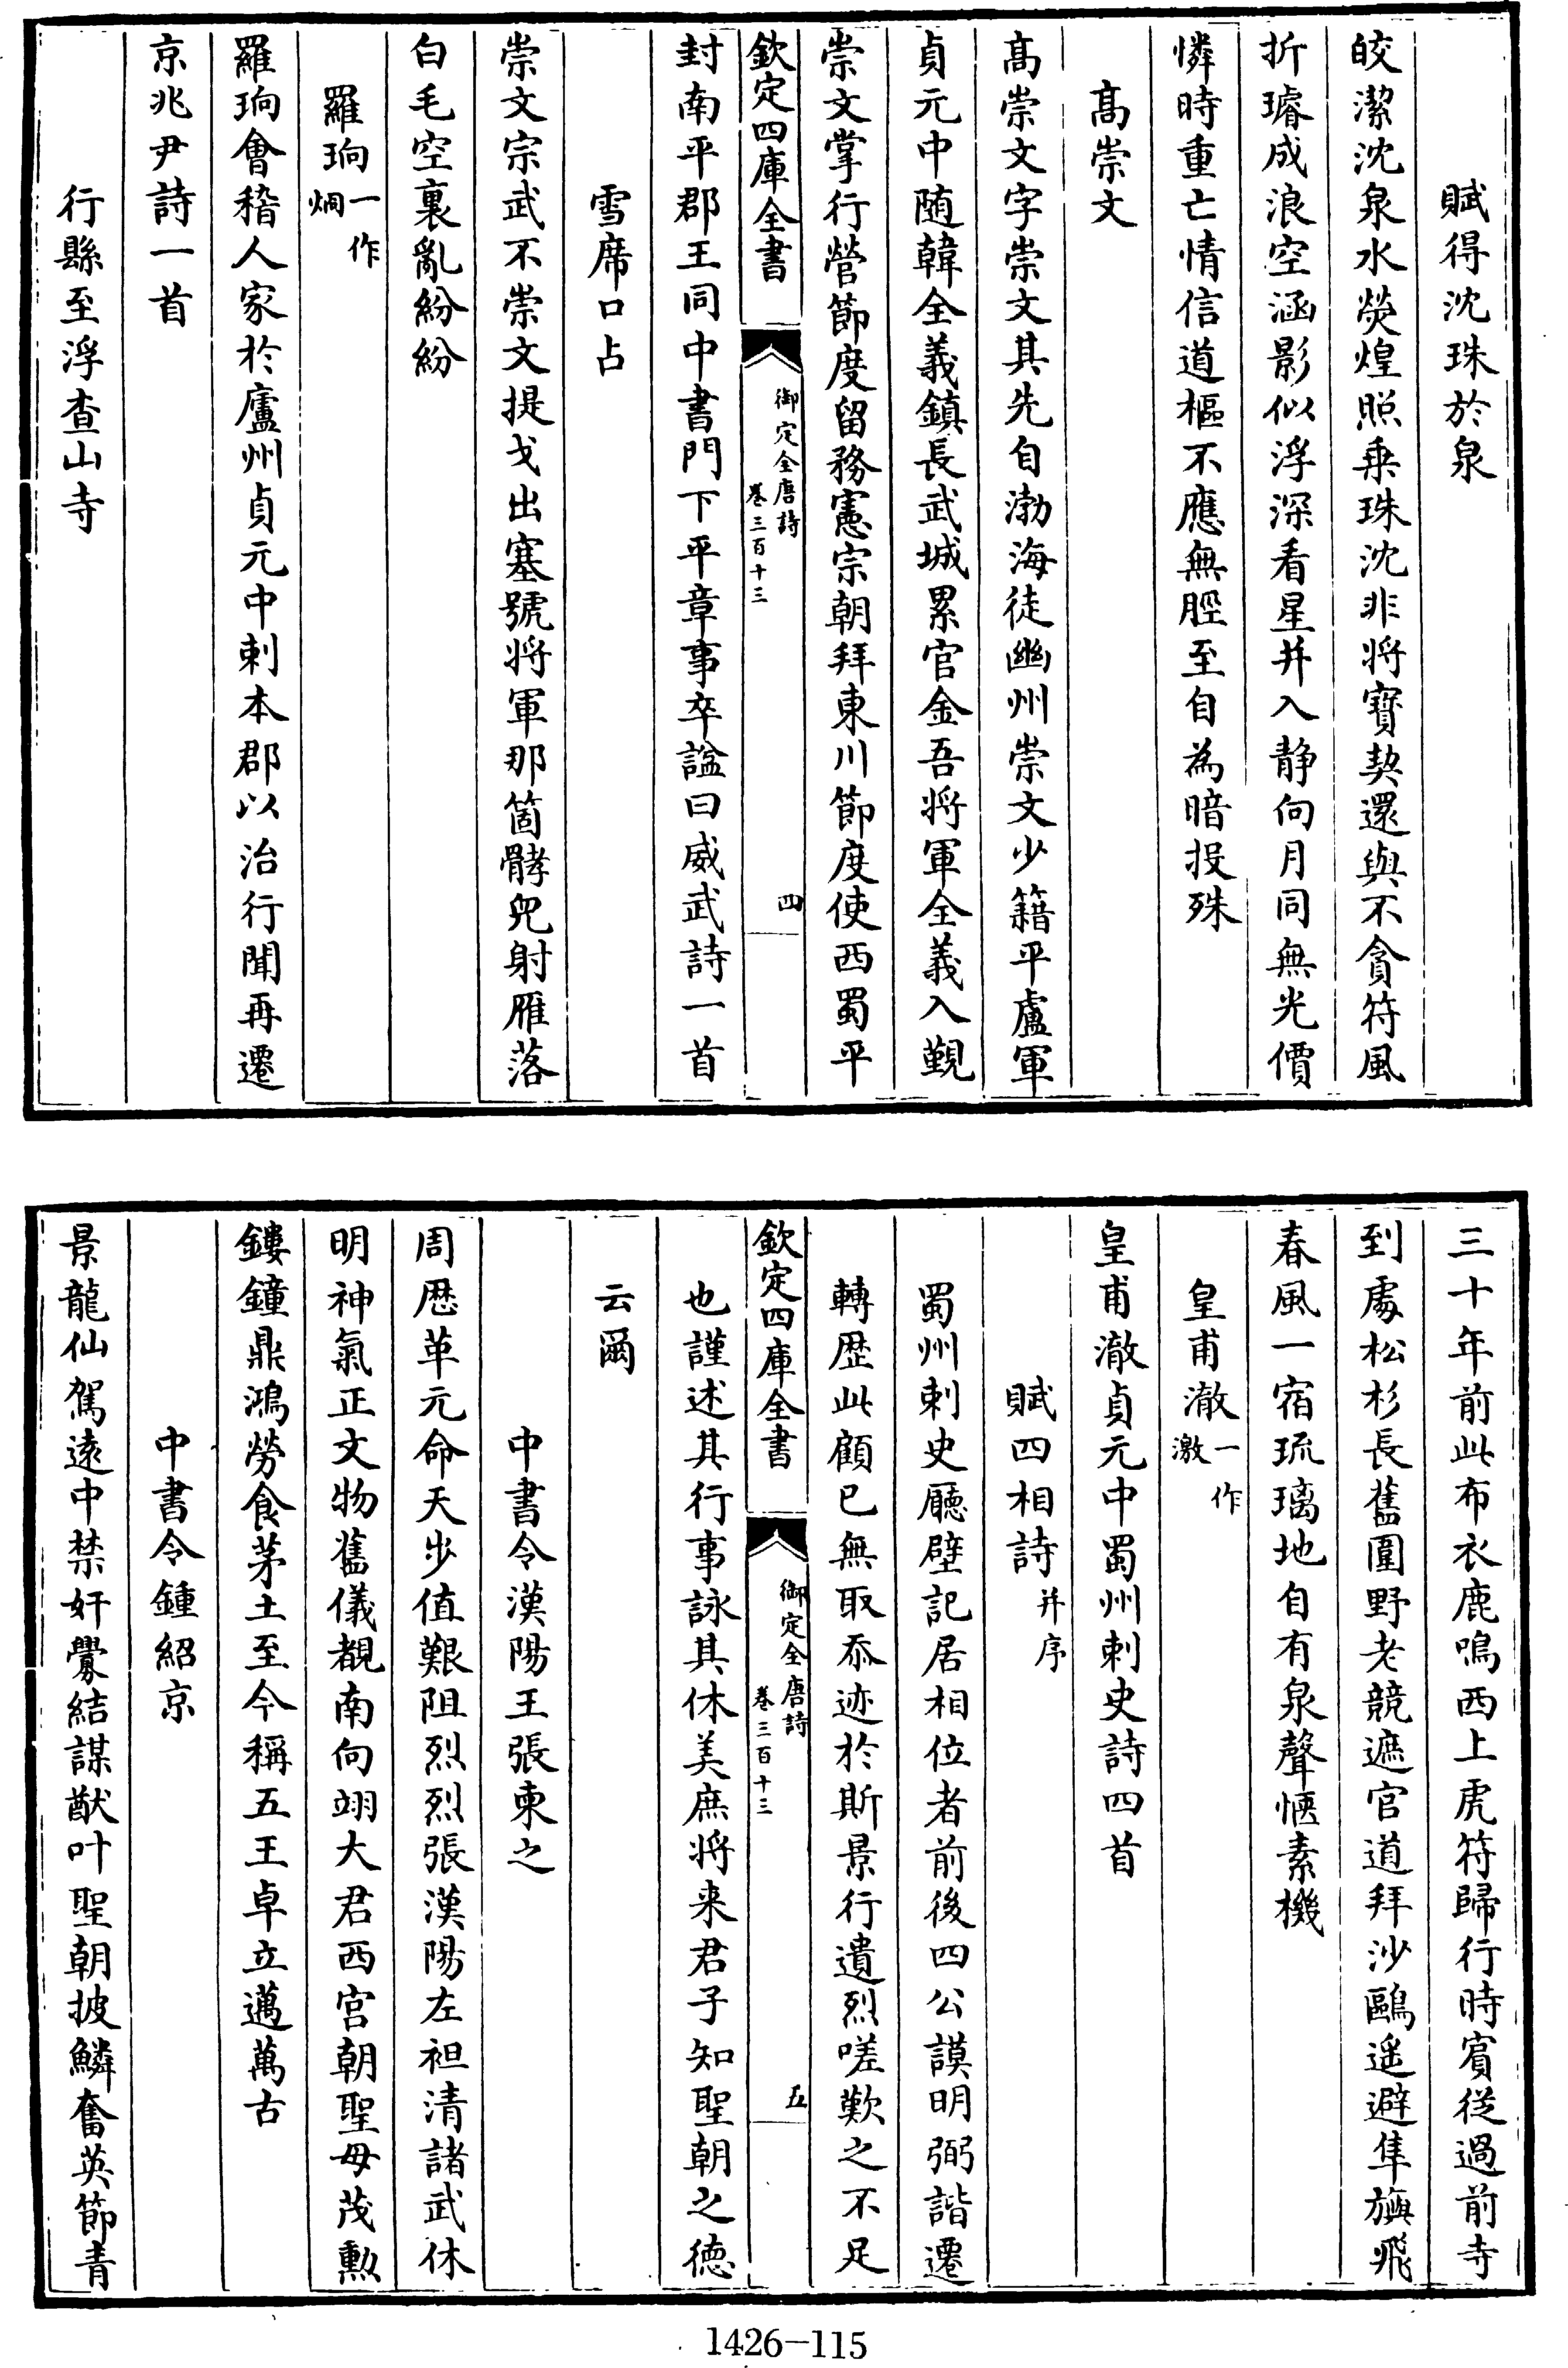 賦得沈珠於泉
皎潔沈泉水熒煌照乗珠沈非将寳契還與不貪符風
折璿成浪空涵影似浮深看星并入静向月同無光價
憐時重亡情信道樞不應無脛至自為暗投殊
髙崇文
髙崇文字崇文其先自渤海徒幽州崇文少籍平盧軍
貞元中随韓全義鎮長武城累官金吾将軍全義入覲
崇文掌行營節度留務憲宗朝拜東川節度使西蜀平
欽定四庫全書
御定全唐詩
卷三百十三
四
封南平郡王同中書門下平章事卒諡曰威武詩一首
雪席口占
崇文宗武不崇文提戈出塞號将軍那箇髇兒射雁落
白毛空裏亂紛紛
羅珦一作炯
羅珦會稽人家於廬州貞元中刺本郡以治行聞再遷
京兆尹詩一首
行縣至浮查山寺
三十年前此布衣鹿鳴西上虎符歸行時賓從過前寺
到處松杉長舊圍野老競遮官道拜沙鷗遥避隼旟飛
春風一宿琉璃地自有泉聲愜素機
皇甫澈一作激
皇甫澈貞元中蜀州刺史詩四首
賦四相詩并序
蜀州刺史廳壁記居相位者前後四公謨明弼諧遷
轉歴此顧已無取忝迹於斯景行遺烈嗟歎之不足
欽定四庫全書
御定全唐詩
卷三百十三
五
也謹述其行事詠其休美庶将来君子知聖朝之徳
云爾
中書令漢陽王張柬之
周歴革元命天步值艱阻烈烈張漢陽左袒清諸武休
明神氣正文物舊儀覩南向翊大君西宫朝聖母茂勲
鏤鐘鼎鴻勞食茅土至今稱五王卓立邁萬古
中書令鍾紹京
景龍仙駕逺中禁奸釁結謀猷叶聖朝披鱗奮英節青
1426-115